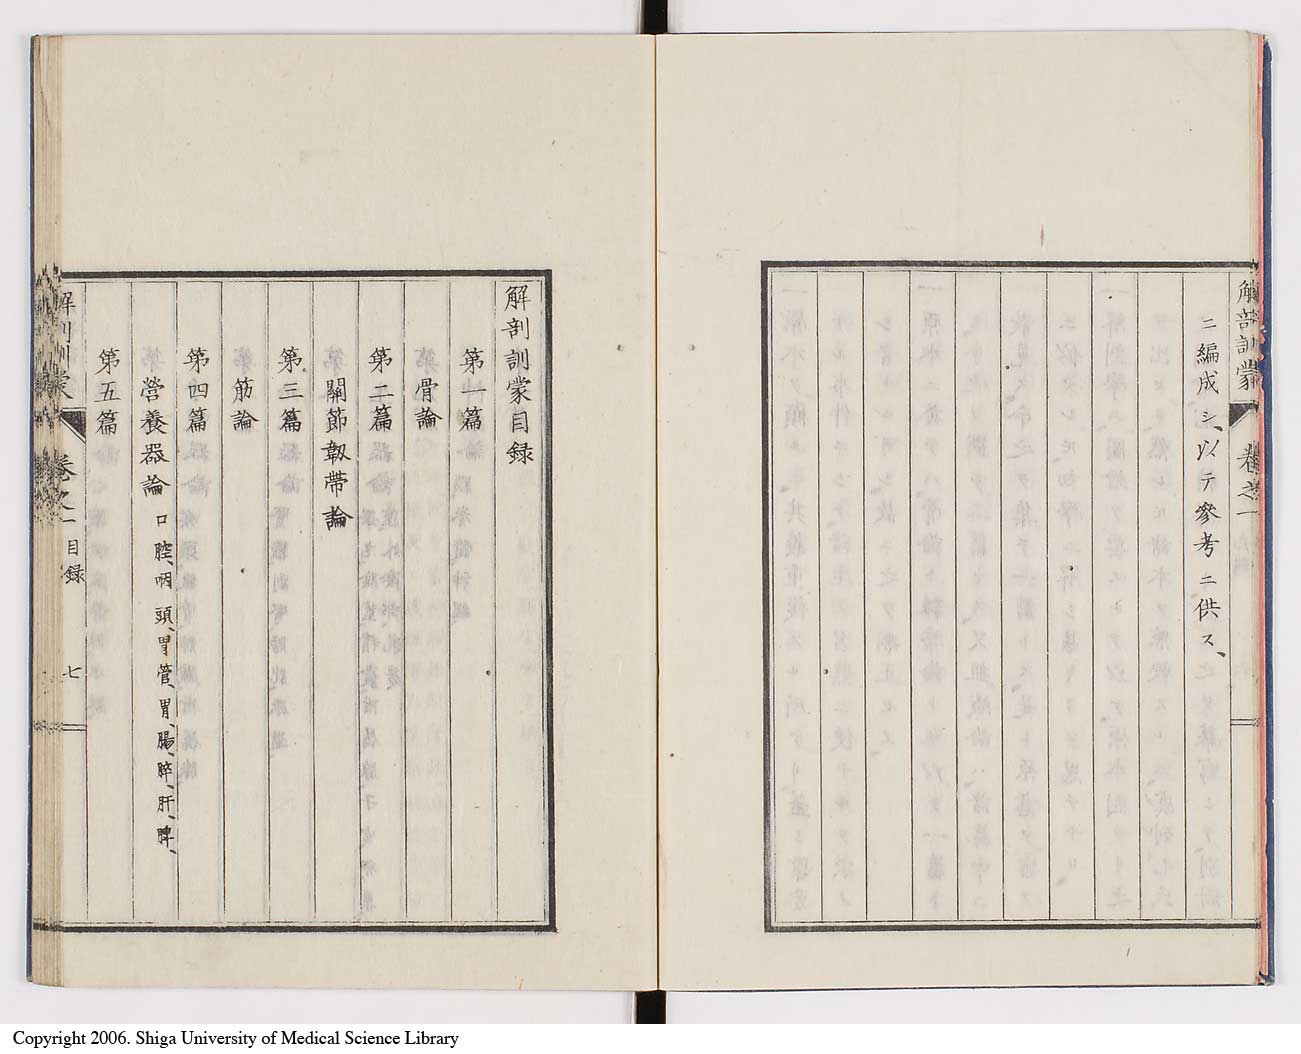 解剖訓蒙
卷之一
ニ編成シ、以テ參考ニ供ス、
解剖訓蒙目録
第一篇
骨論
第二篇
關節韌帶論
第三篇
筋論
第四篇
營養器論 口腔、咽頭、胃管、胃、腸、膵、肝、脾、
第五篇
解剖訓蒙
卷之一
目録
七
Copyright 2006. Shiga University of Medical Science Library